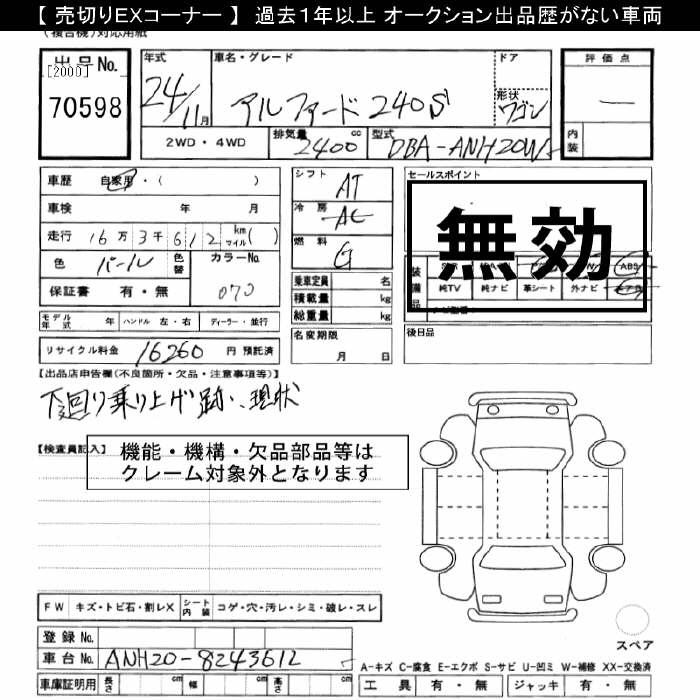 【 売切りEXコーナー 】 過去１年以上 オークション出品歴がない車両
(複合機)対応用紙
出品No.
[2000]
70598
年式
24/11月
車名・グレード
アルファード 240S
ドア
形状
ワゴン
評価点
—
内装
2WD・4WD
排気量
2400
cc
型式
DBA-ANH20W
車歴 自家用・( )
車検 年 月
走行 16万3千612 km マイル( )
色 パール
色替
カラーNo.
070
保証書 有・無
モデル年式 年 ハンドル 左・右 ディーラー・並行
リサイクル料金 16260 円 預託済
シフト AT
冷房 AC
燃料 G
乗車定員 名
積載量 kg
総重量 kg
名変期限
月 日
セールスポイント
無効
装備品
ABS
純TV 純ナビ 革シート 外ナビ
後日品
【出品店申告欄(不良箇所・欠品・注意事項等)】
下回り乗り上げ跡、現状
【検査員記入】
機能・機構・欠品部品等は
クレーム対象外となります
FW キズ・トビ石・割レX シート内装 コゲ・穴・汚レ・シミ・破レ・スレ
登録No.
車台No. ANH20-8243612
車庫証明用 長さ cm 幅 cm 高さ cm
スペア
A-キズ C-腐食 E-エクボ S-サビ U-凹ミ W-補修 XX-交換済
工具 有・無 ジャッキ 有・無